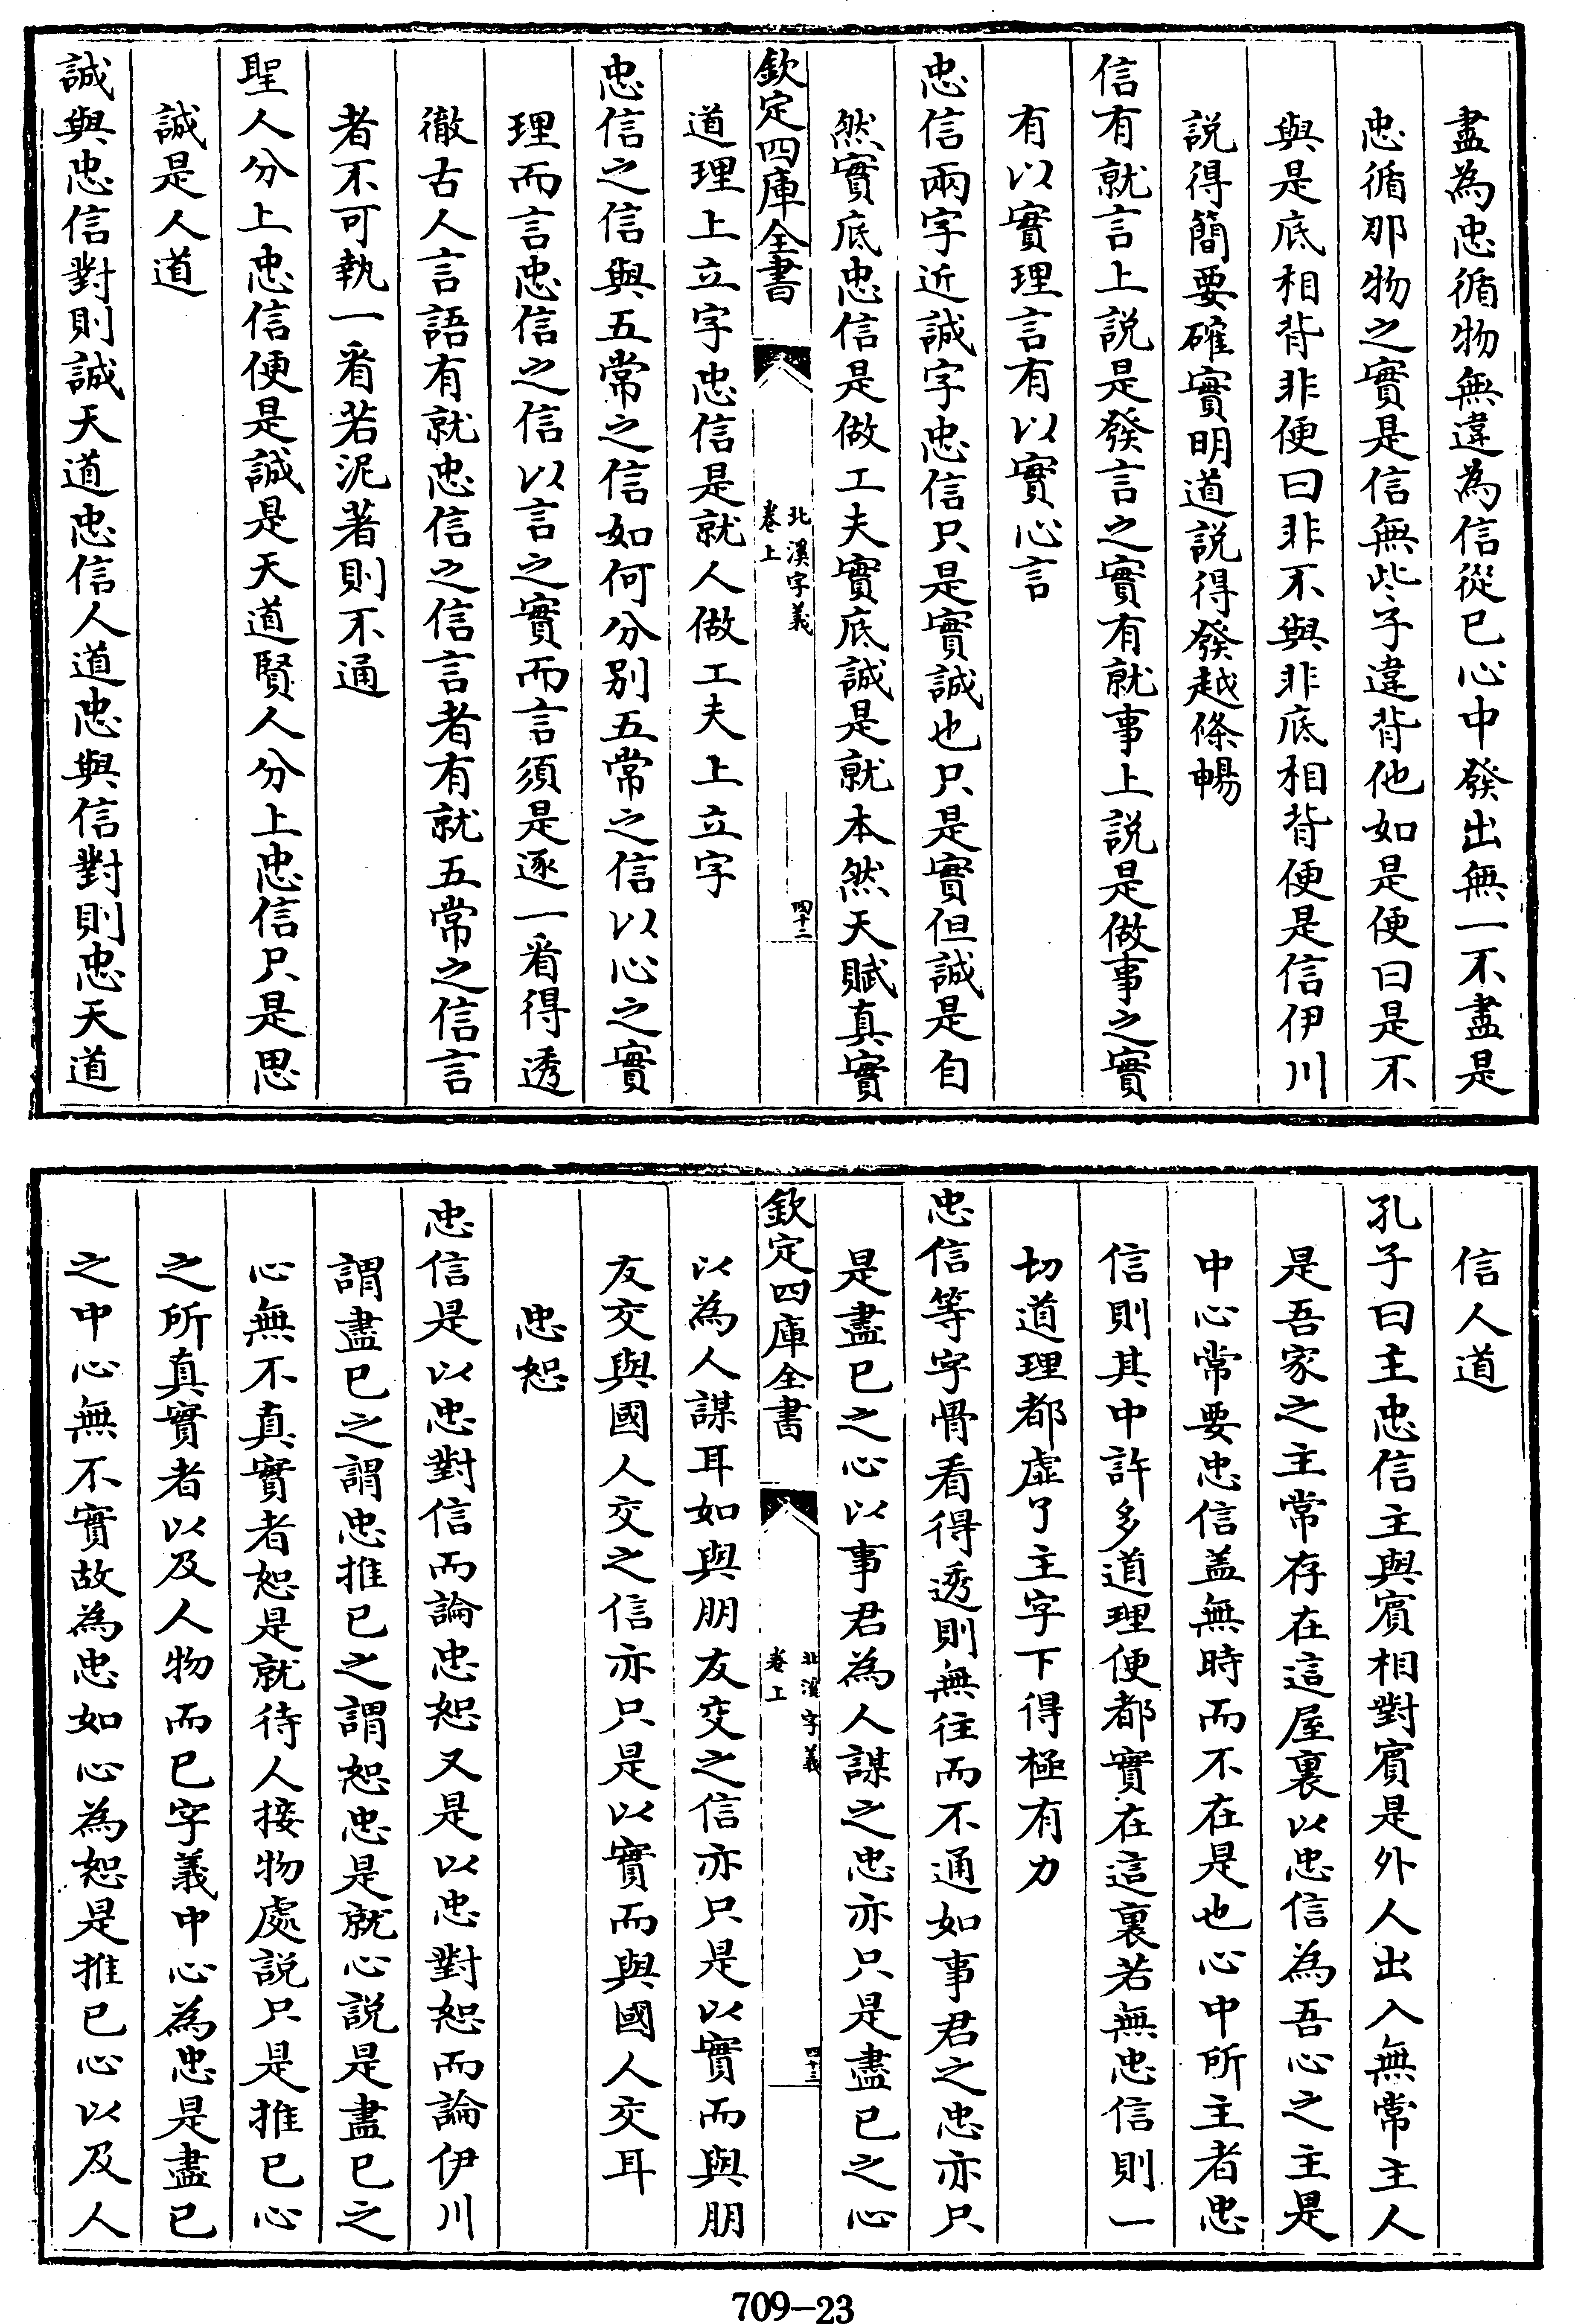 盡為忠循物無違為信從己心中發出無一不盡是
忠循那物之實是信無些子違背他如是便曰是不
與是底相背非便曰非不與非底相背便是信伊川
說得簡要確實明道說得發越條暢
信有就言上說是發言之實有就事上說是做事之實
有以實理言有以實心言
忠信兩字近誠字忠信只是實誠也只是實但誠是自
然實底忠信是做工夫實底誠是就本然天賦真實
欽定四庫全書
北溪字義
卷上
四十二
道理上立字忠信是就人做工夫上立字
忠信之信與五常之信如何分別五常之信以心之實
理而言忠信之信以言之實而言須是逐一看得透
徹古人言語有就忠信之信言者有就五常之信言
者不可執一看若泥著則不通
聖人分上忠信便是誠是天道賢人分上忠信只是思
誠是人道
誠與忠信對則誠天道忠信人道忠與信對則忠天道
信人道
孔子曰主忠信主與賓相對賓是外人出入無常主人
是吾家之主常存在這屋裏以忠信為吾心之主是
中心常要忠信盖無時而不在是也心中所主者忠
信則其中許多道理便都實在這裏若無忠信則一
切道理都虛了主字下得極有力
忠信等字骨看得透則無往而不通如事君之忠亦只
是盡己之心以事君為人謀之忠亦只是盡己之心
欽定四庫全書
北溪字義
卷上
四十三
以為人謀耳如與朋友交之信亦只是以實而與朋
友交與國人交之信亦只是以實而與國人交耳
忠恕
忠信是以忠對信而論忠恕又是以忠對恕而論伊川
謂盡己之謂忠推己之謂恕忠是就心說是盡己之
心無不真實者恕是就待人接物處說只是推己心
之所真實者以及人物而已字義中心為忠是盡己
之中心無不實故為忠如心為恕是推己心以及人
709-23